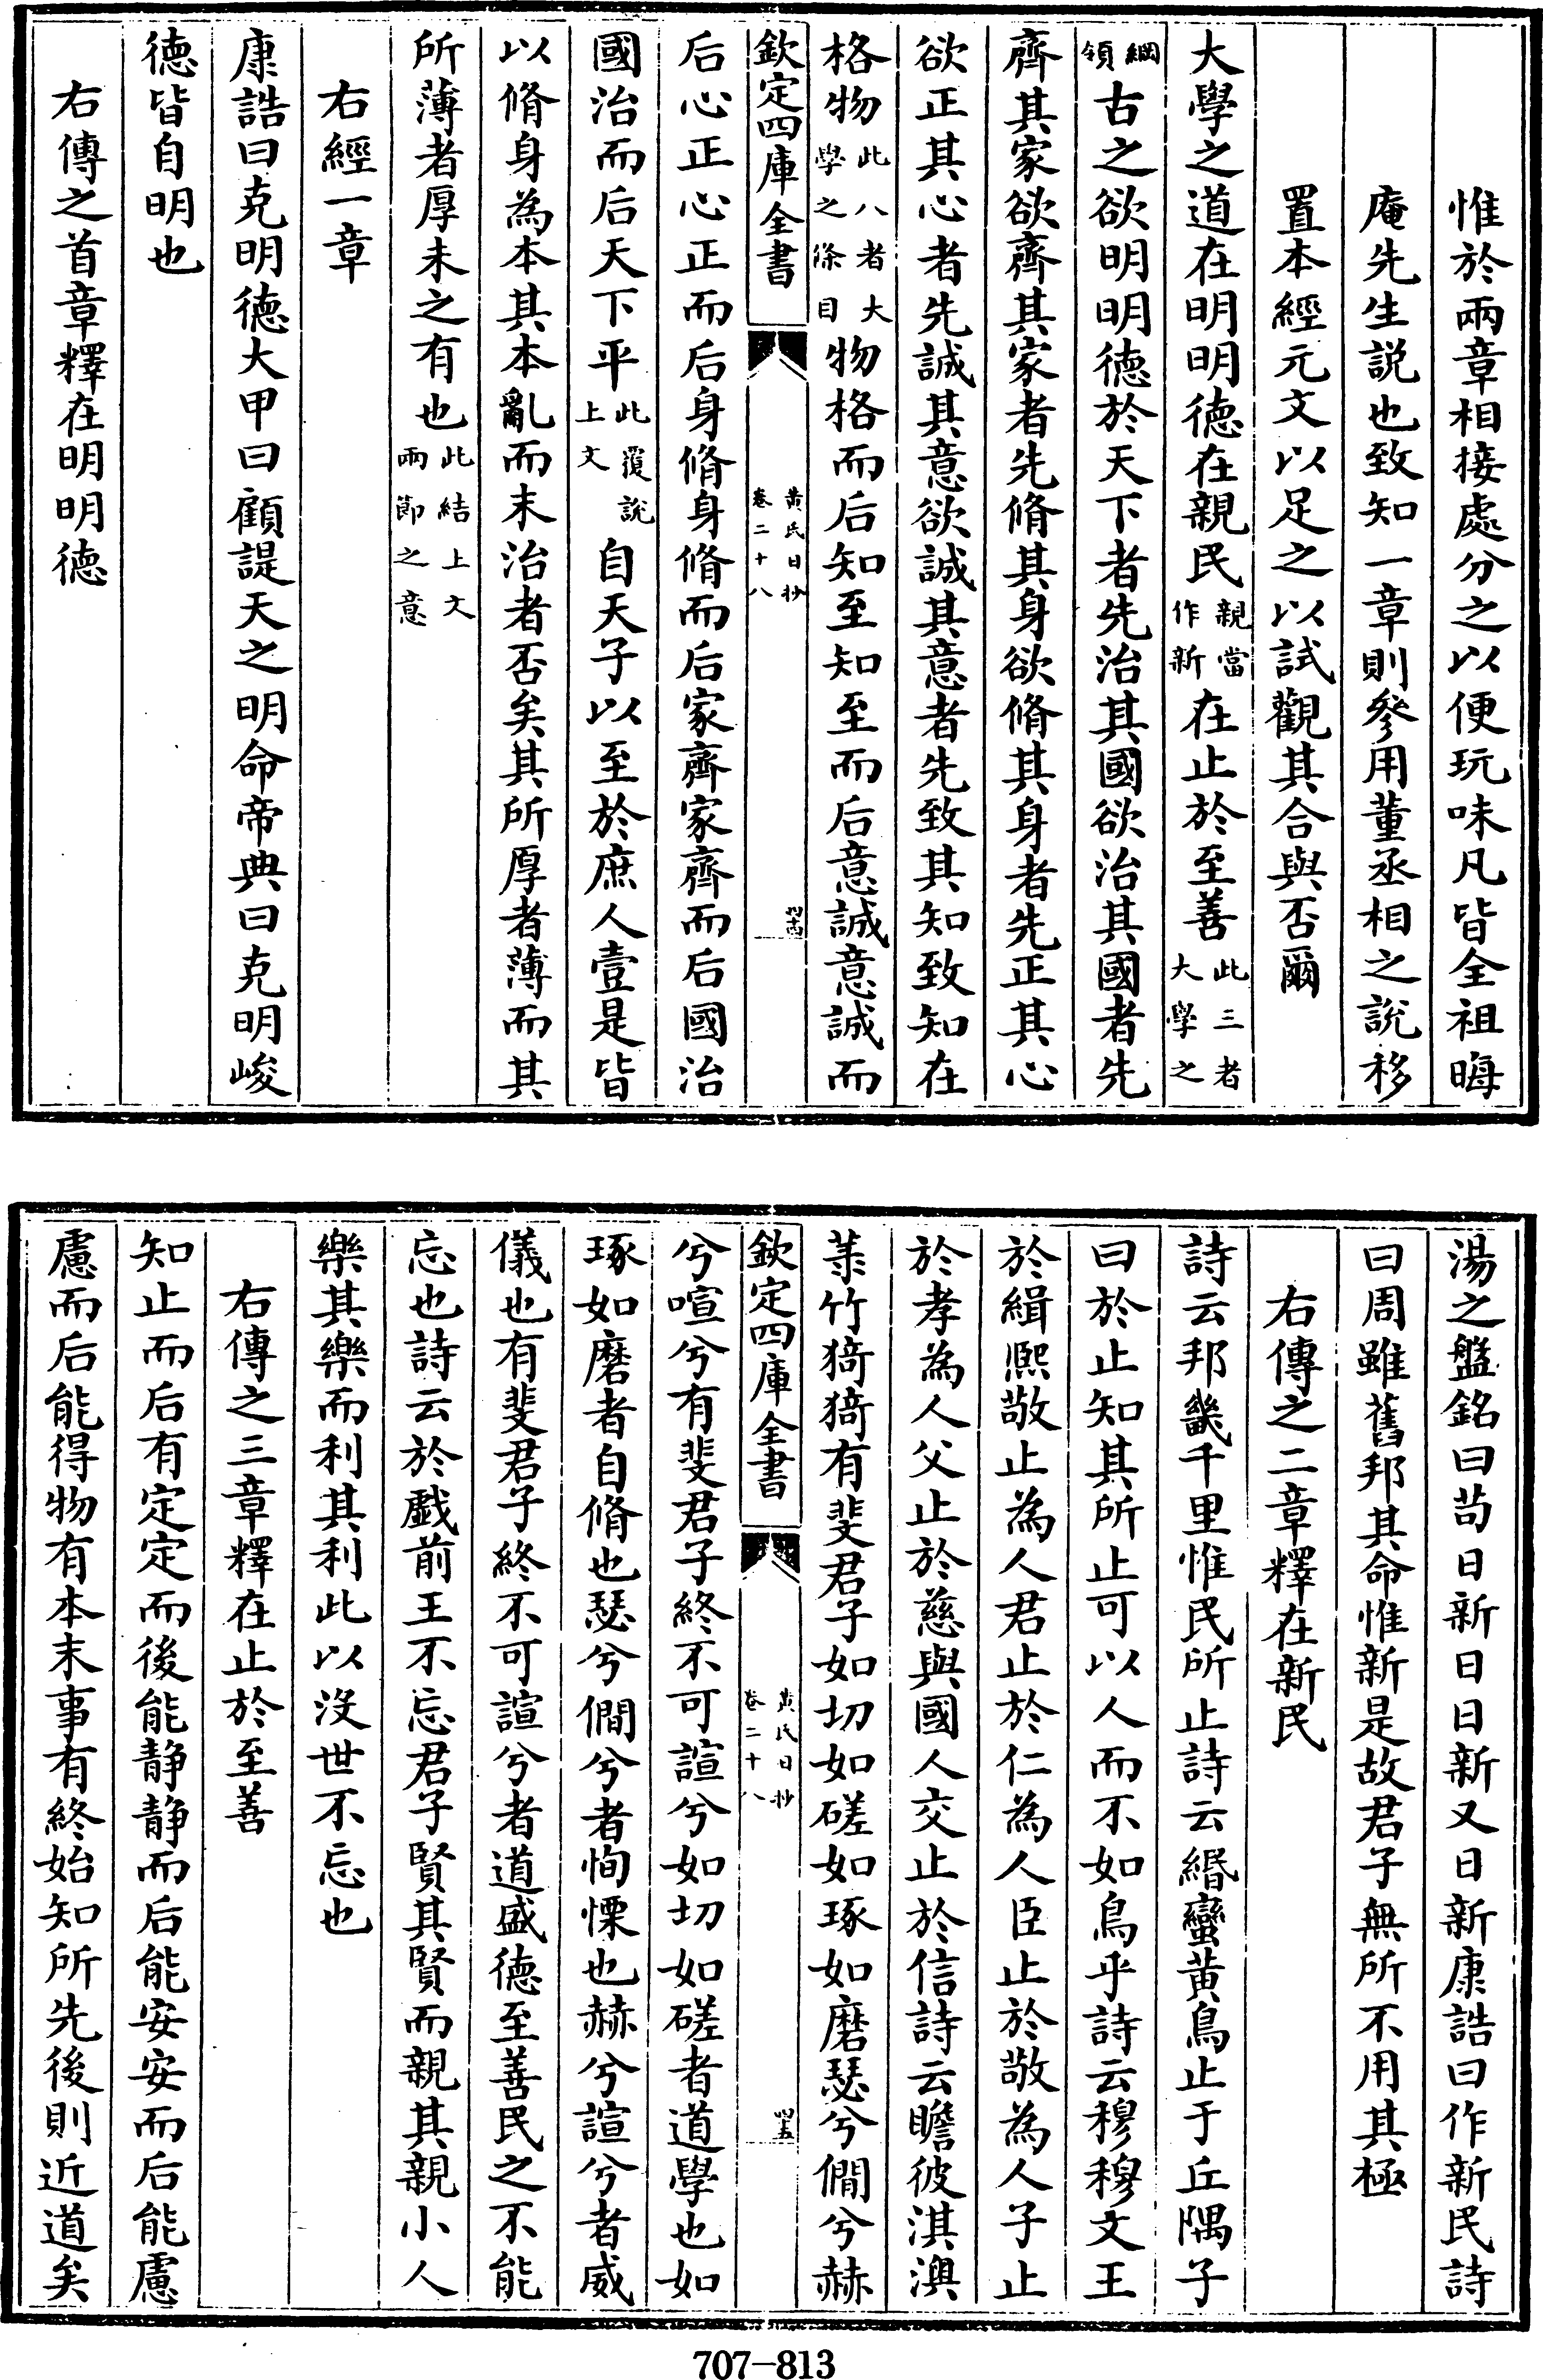 惟於兩章相接處分之以便玩味凡皆全祖晦
庵先生説也致知一章則參用董丞相之說移
置本經元文以足之以試觀其合與否爾
大學之道在明明德在親民親當作新在止於至善此三者大學之
綱領古之欲明明德於天下者先治其國欲治其國者先
齊其家欲齊其家者先脩其身欲脩其身者先正其心
欲正其心者先誠其意欲誠其意者先致其知致知在
格物此八者大學之條目物格而后知至知至而后意誠意誠而
欽定四庫全書 黃氏日抄卷二十八 四十四
后心正心正而后身脩身脩而后家齊家齊而后國治
國治而后天下平此覆說上文自天子以至於庶人壹是皆
以脩身為本其本亂而末治者否矣其所厚者薄而其
所薄者厚未之有也此結上文兩節之意
右經一章
康誥曰克明德大甲曰顧諟天之明命帝典曰克明峻
德皆自明也
右傳之首章釋在明明德
湯之盤銘曰苟日新日日新又日新康誥曰作新民詩
曰周雖舊邦其命惟新是故君子無所不用其極
右傳之二章釋在新民
詩云邦畿千里惟民所止詩云緡蠻黃鳥止于丘隅子
曰於止知其所止可以人而不如鳥乎詩云穆穆文王
於緝熙敬止為人君止於仁為人臣止於敬為人子止
於孝為人父止於慈與國人交止於信詩云瞻彼淇澳
菉竹猗猗有斐君子如切如磋如琢如磨瑟兮僩兮赫
欽定四庫全書 黃氏日抄卷二十八 四十五
兮喧兮有斐君子終不可諠兮如切如磋者道學也如
琢如磨者自脩也瑟兮僩兮者恂慄也赫兮諠兮者威
儀也有斐君子終不可諠兮者道盛德至善民之不能
忘也詩云於戲前王不忘君子賢其賢而親其親小人
樂其樂而利其利此以沒世不忘也
右傳之三章釋在止於至善
知止而后有定定而後能静静而后能安安而后能慮
慮而后能得物有本末事有終始知所先後則近道矣
707-813